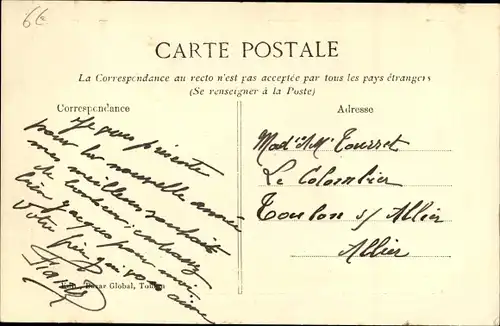 6E
CARTE POSTALE
La Correspondance au recto n'est pas acceptée par tous les pays étrangers
(Se renseigner à la Poste)
Correspondance
Je vous présente
pour la nouvelle année
mes meilleurs souhaits
de bonheur; embrassez
bien Jacques pour moi
Votre frère qui vous aime
Adresse
Mad. & Mr Tourret
Le Colombier
Toulon s/ Allier
Allier
Bazar Global, Toulon